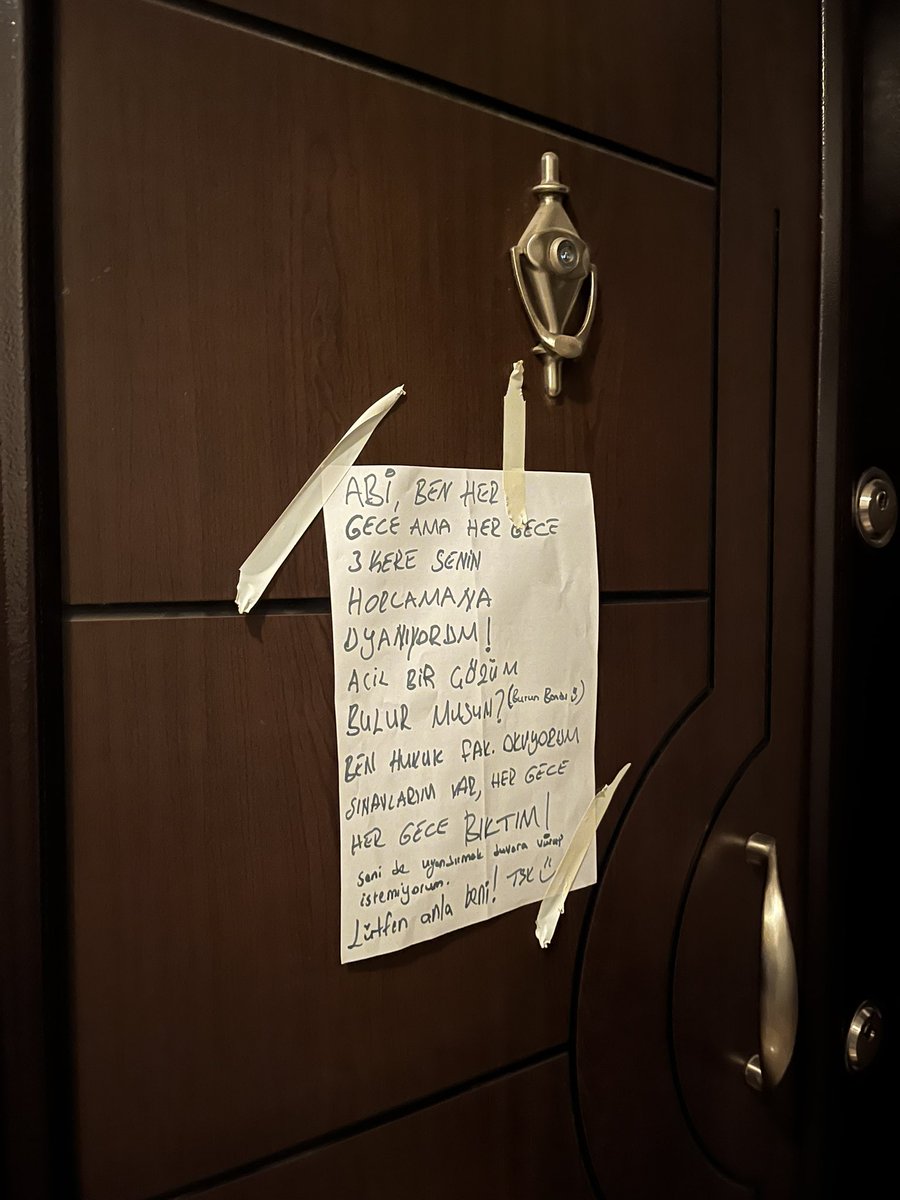 ABİ, BEN HER
GECE AMA HER GECE
3 KERE SENİN
HORLAMANA
UYANIYORUM!
ACİL BİR ÇÖZÜM
BULUR MUSUN? (Burun Bandı :))
BEN HUKUK FAK. OKUYORUM
SINAVLARIM VAR, HER GECE
HER GECE BIKTIM!
seni de uyandırmak duvara vurup
istemiyorum.
Lütfen anla beni! TŞK :)